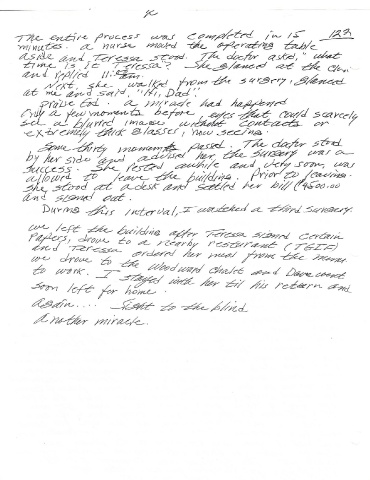 123
The entire process was completed in 15
minutes. A nurse moved the operating table
aside and Teressa stood. The doctor asked, "what
time is it Teressa? She glanced at the
and replied 11: am.
Next, she walked from the surgery, glanced
at me and said, "Hi, Dad"
praise God. A miracle had happened
Only a few moments before, eyes that could scarcely
see a blurred image without contacts or
extremely thick glasses, now seeing.
Some thirty moments passed. The doctor stood
by her side and advised her the surgery was a
success. She rested awhile and very soon, was
allowed to leave the building. Prior to leaving
she stood at a desk and settled her bill (4500.00
and signed out.
During this interval, I watched a third surgery.
We left the building after Teressa signed certain
Papers, drove to a nearby resturant (TGIF)
and Teressa ordered her meal from the menu
we drove to the Woodward Chalet and Dave went
to work. I stayed with her til his return and
soon left for home.
Again.... Sight to the blind
Another miracle.